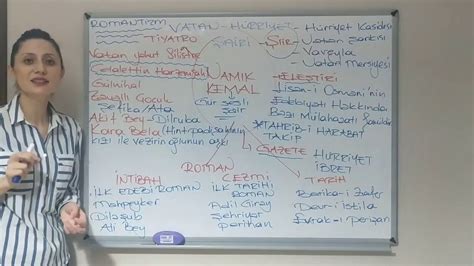 ROMANTİZM
VATAN-HÜRRİYET
ŞAİRİ
TİYATRO
Vatan yahut Silistre
Celalettin Harzemşah
Gülnihal
Zavallı Çocuk
Şefika/Ata
Akif Bey-Dilruba
Kara Bela (Hint padişahının
kızı ile vezirin oğlunun aşkı
NAMIK
KEMAL
Gür sesli
şair
Şiir
Hürriyet Kasidesi
Vatan Şarkısı
Vaveyla
Vatan Mersiyesi
ELEŞTİRİ
Lisan-ı Osmani'nin
Edebiyatı Hakkında
Bazı Mülahazatı Şamildir
TAHRİB-İ HARABAT
TAKİP
GAZETE
HÜRRİYET
İBRET
ROMAN
İNTİBAH
İLK EDEBİ ROMAN
Mahpeyker
Dilaşub
Ali Bey
CEZMİ
İLK TARİHİ
ROMAN
Adil Giray
Şehriyar
Perihan
TARİH
Barika-i Zafer
Devr-i İstila
Evrak-ı Perişan